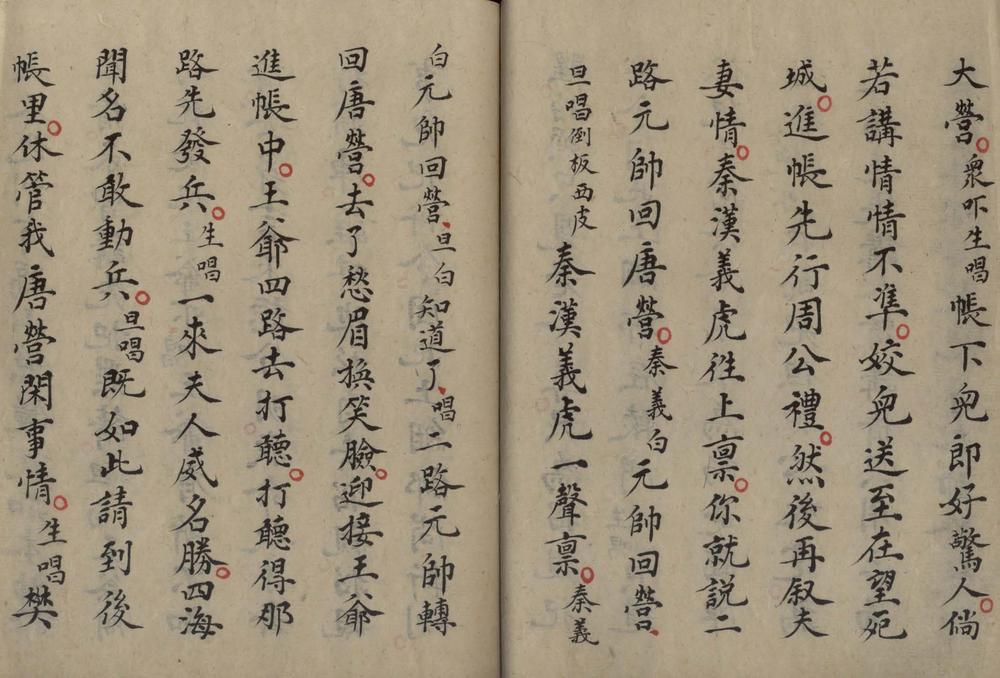 大營。衆吓生唱帳下皃即好驚人。倘
若講情情不準。姣皃送至在望死
城。進帳先行周公禮。然後再叙夫
妻情。秦漢義虎往上禀。你就説二
路元帥回唐營。秦義白元帥回營、
旦唱倒板西皮秦漢義虎一聲禀。秦義
白元帥回營、旦白知道了、唱二路元帥轉
回唐營。去了愁眉換笑臉。迎接王爺
進帳中。王爺四路去打聽。打聽得那
路先發兵。生唱一來夫人威名勝。四海
聞名不敢動兵。旦唱既如此請到後
帳里。休管我唐營閑事情。生唱樊